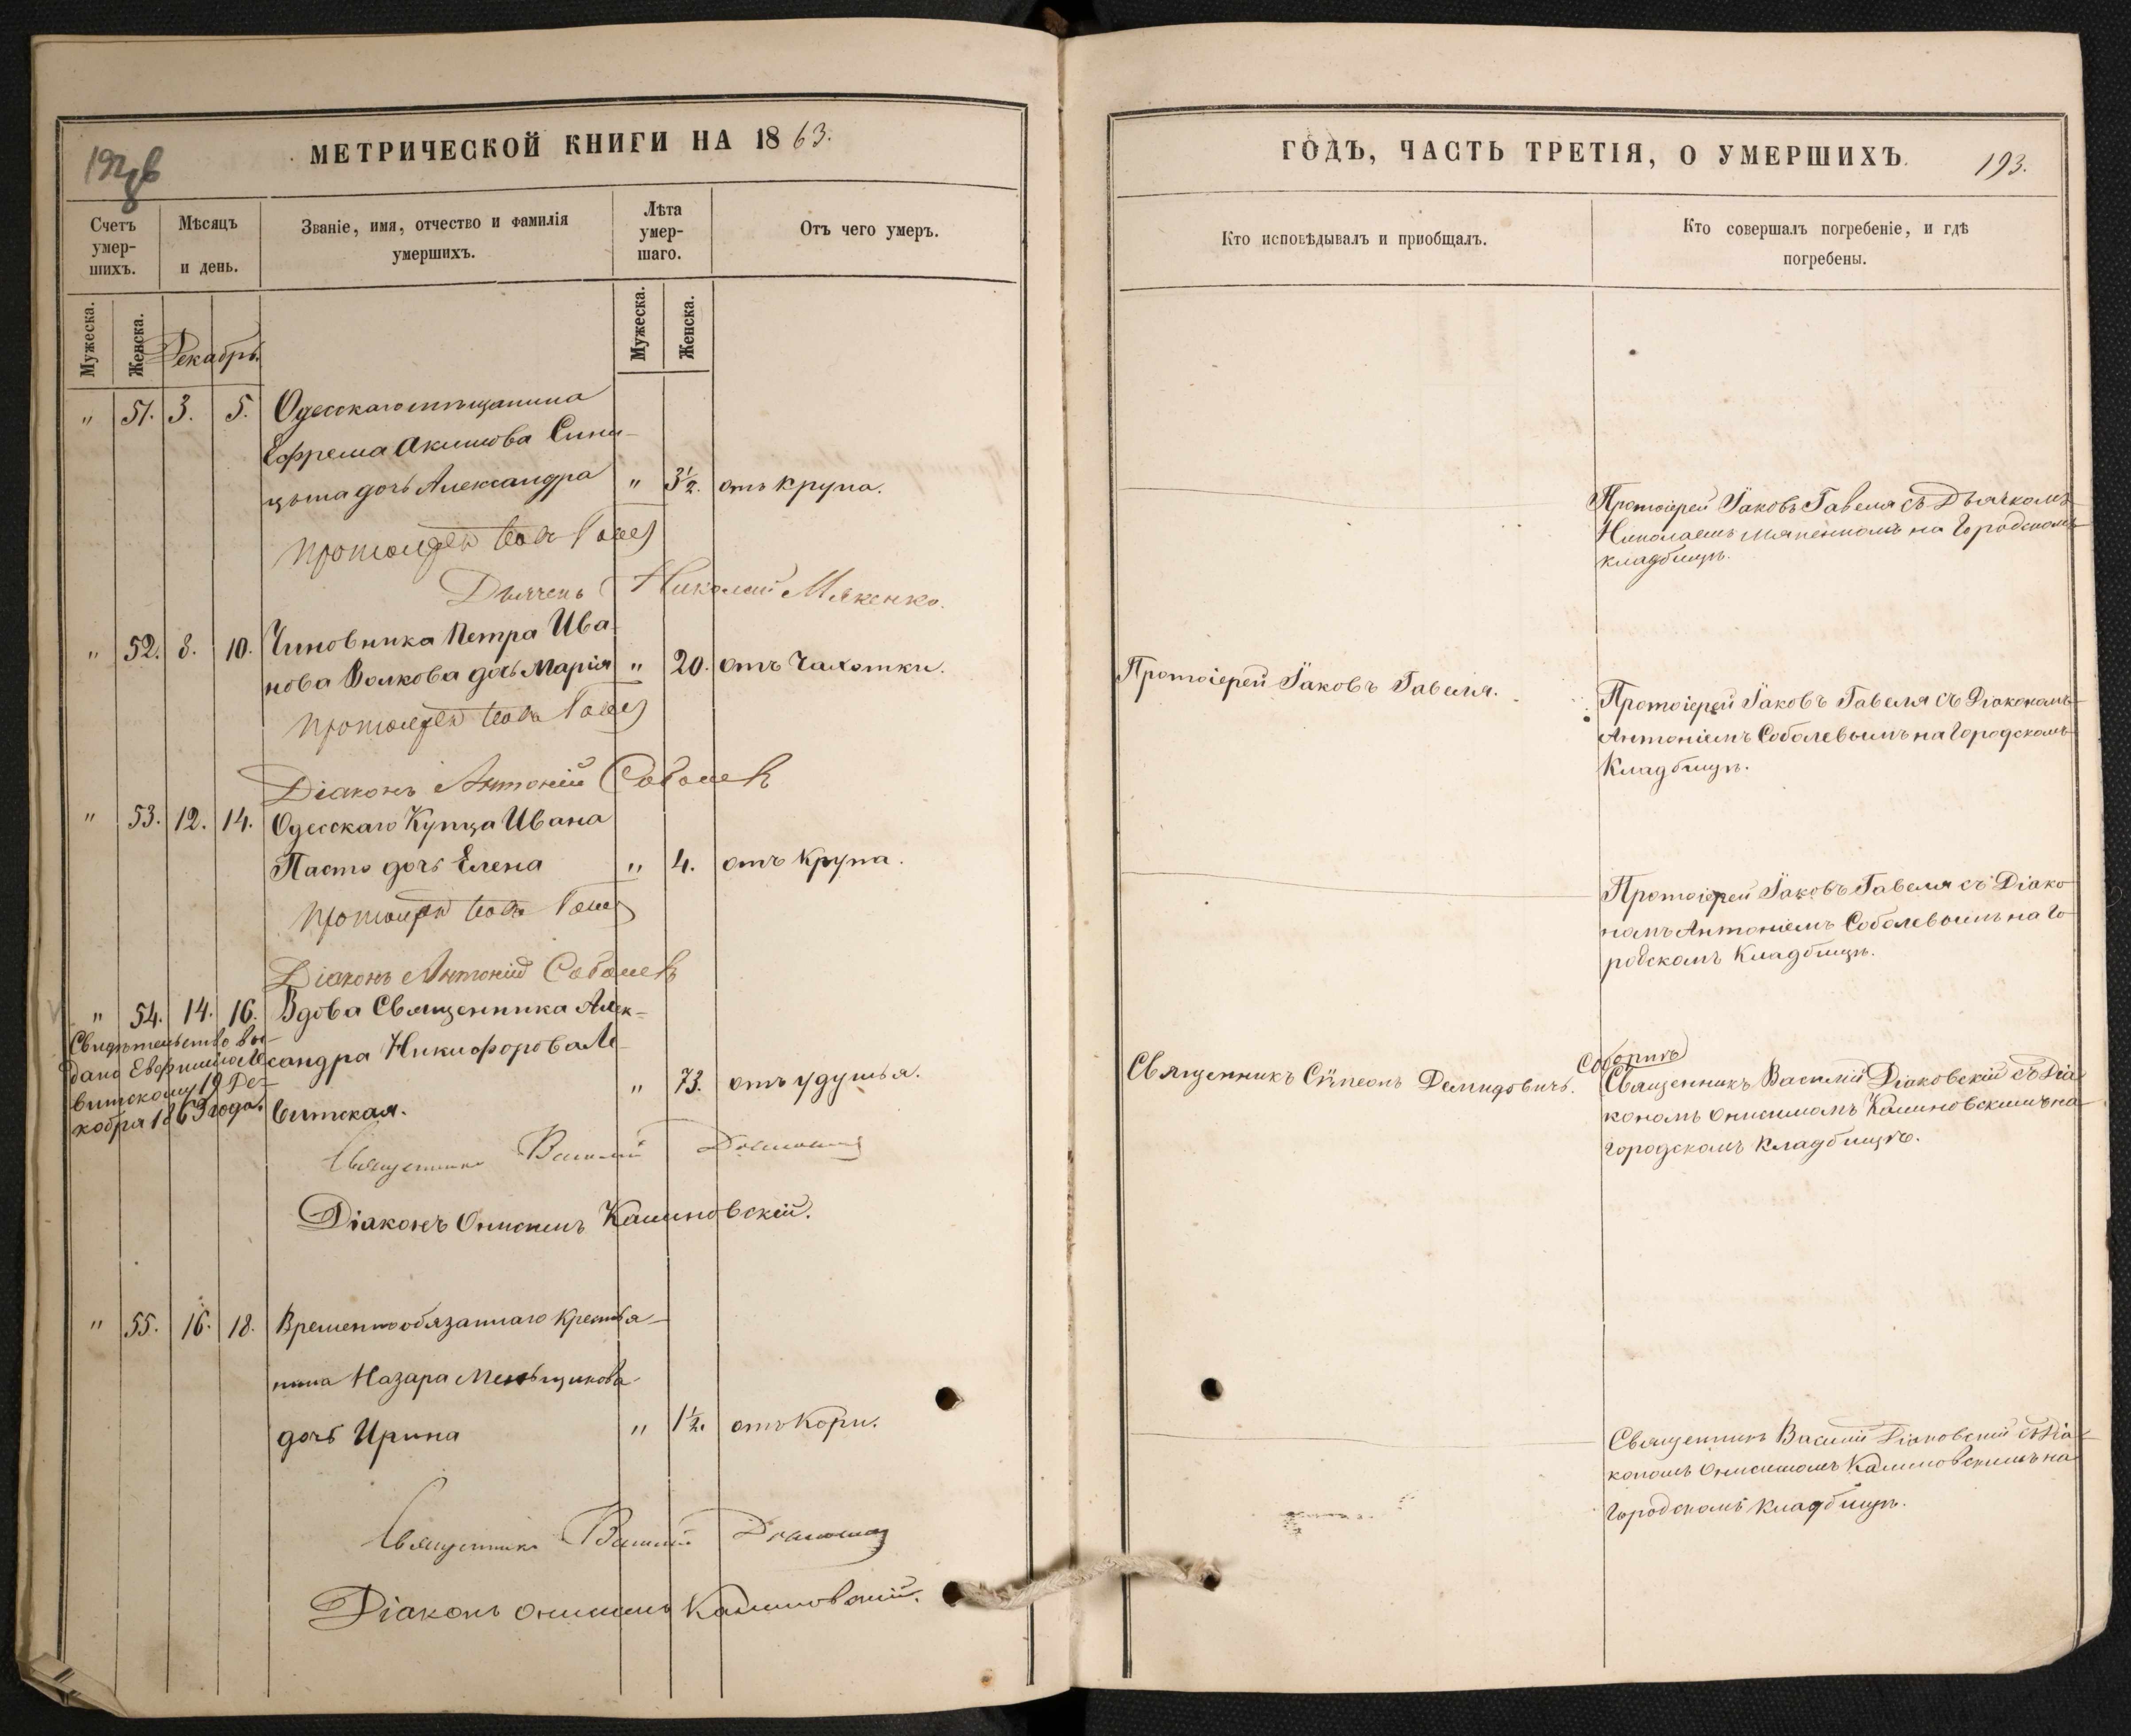 МЕТРИЧЕСКОЙ КНИГИ НА 1863.
Счетъ умер-шихъ.
Мѣсяцъ и день.
Званіе, имя, отчество и фамилія умершихъ.
Лѣта умер-шаго.
Отъ чего умеръ.
Мужеска.
Женска.
Декабрь.
Мужеска.
Женска.
" 51. 3. 5. Одесскаго мѣщанина
Ефрема Акимова Сини-
цына дочь Александра " 3½. отъ крупа.
Протоіерей
Дьячекъ Николай Мякенко.
" 52. 8. 10. Чиновника Петра Ива-
нова Волкова дочь Марія " 20. отъ Чахотки.
Протоіерей
Діаконъ Антоній Соболевъ
" 53. 12. 14. Одесскаго Купца Ивана
Пасто дочь Елена " 4. отъ крупа.
Протоіерей
Діаконъ Антоній Соболевъ
" 54. 14. 16. Вдова Священника Алек-
сандра Никифорова Ле-
витская. " 73. отъ удушья.
Свидѣтельство вы-
дано Ле-
витскому 19 Де-
кабря 1863 года.
Священникъ Василій
Діаконъ Онисимъ Калиновскій.
" 55. 16. 18. Временнообязаннаго крестья-
нина Назара Меньщикова
дочь Ирина " 1½. отъ Кори.
Священникъ Василій
Діаконъ Онисимъ Калиновскій.
ГОДЪ, ЧАСТЬ ТРЕТІЯ, О УМЕРШИХЪ. 193.
Кто исповѣдывалъ и приобщалъ.
Кто совершалъ погребеніе, и гдѣ погребены.
Протоіерей Іаковъ Гавеля съ Дьячкомъ
Николаемъ Мякенкомъ на Городскомъ
кладбищѣ.
Протоіерей Іаковъ Гавеля.
Протоіерей Іаковъ Гавеля съ Діакономъ
Антоніемъ Соболевымъ на Городскомъ
Кладбищѣ.
Протоіерей Іаковъ Гавеля съ Діако-
номъ Антоніемъ Соболевымъ на Го-
родскомъ Кладбищѣ.
Священникъ Сѵмеонъ Демидовичъ.
Соборнѣ
Священникъ Василій Діаковскій съ Діа-
кономъ Онисимомъ Калиновскимъ на
Городскомъ Кладбищѣ.
Священникъ Василій Діаковскій съ Діа-
кономъ Онисимомъ Калиновскимъ на
Городскомъ кладбищѣ.